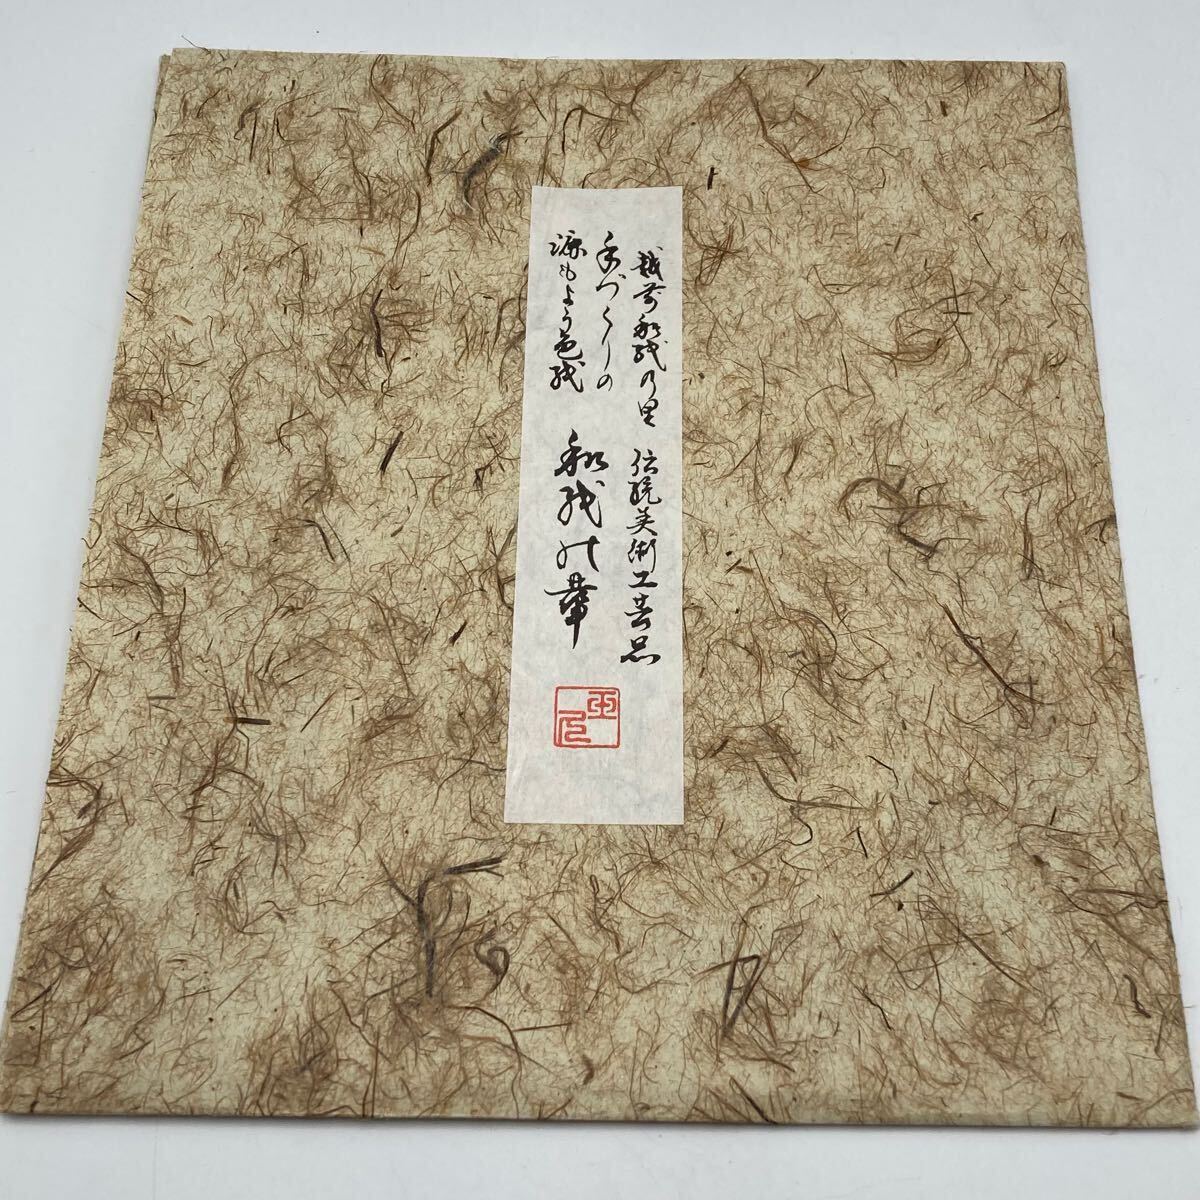 越前和紙の里 伝統美術工芸品
手づくりの
もよう色紙
和紙の華